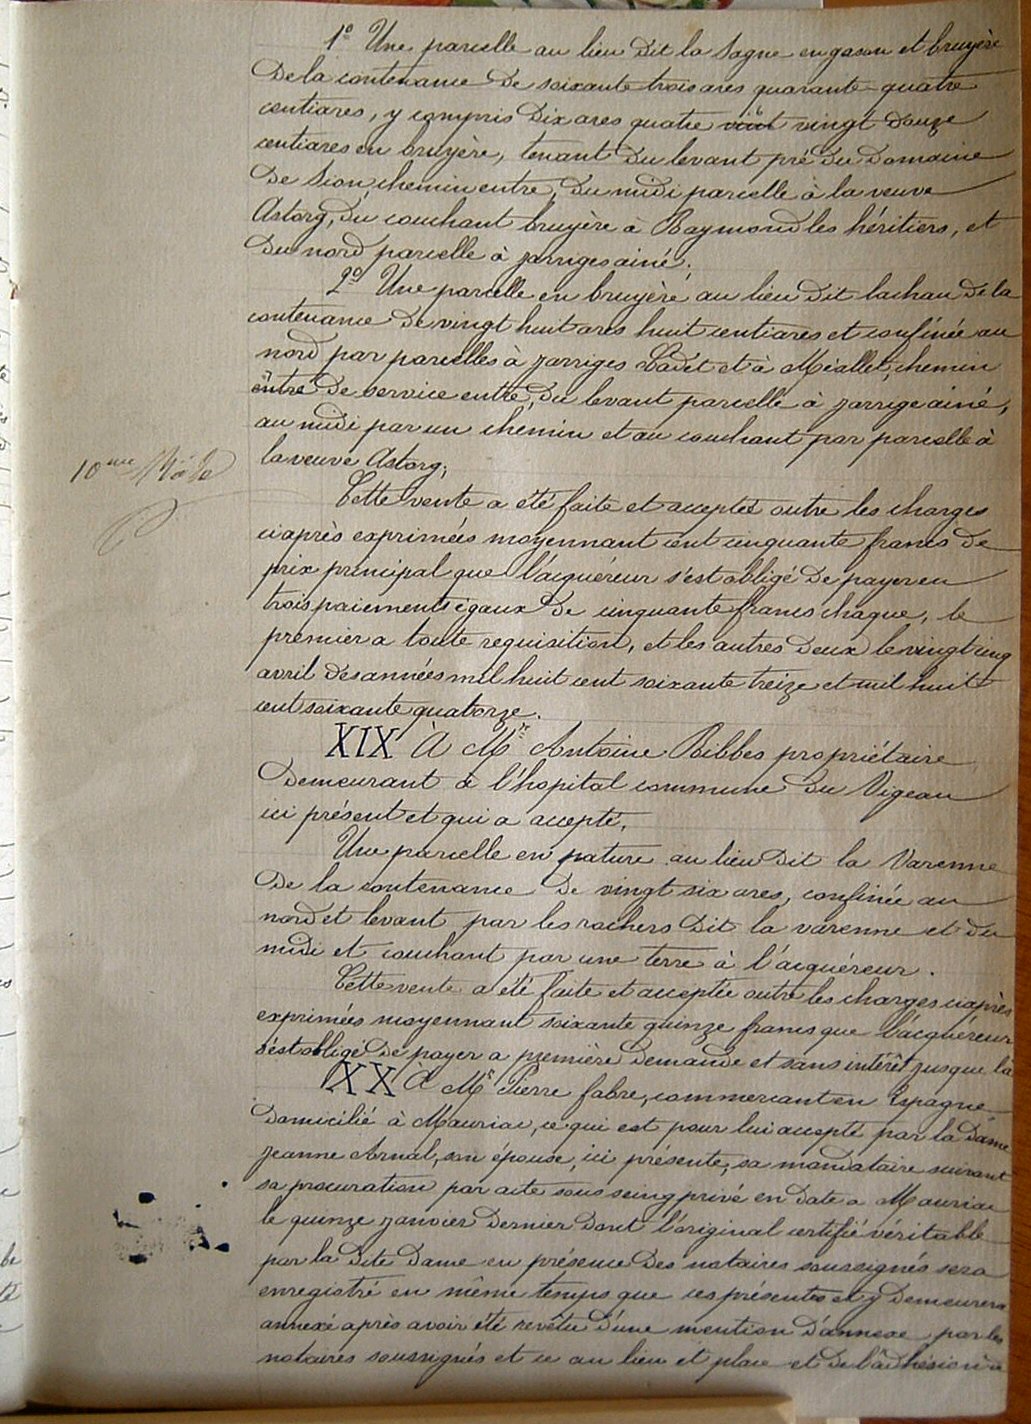 1º Une parcelle au lieu dit la Sagne en gason et bruyère
de la contenance de soixante trois ares quarante quatre
centiares, y compris dix ares quatre vingt douze
centiares en bruyère, tenant du levant pré du domaine
de Sion, chemin entre, du midi parcelle à la veuve
Astorg, du couchant bruyère à Raymond les héritiers, et
du nord parcelle à Jarriges ainé;
2º Une parcelle en bruyère au lieu dit lachau de la
contenance de vingt huit ares huit centiares et confinée au
nord par parcelles à Jarriges Cadet et à Méallet, chemin
entre de service entre, du levant parcelle à Jarrige ainé,
au midi par un chemin et au couchant par parcelle à
la veuve Astorg;
10me Rôle
Cette vente a été faite et acceptée outre les charges
ci après exprimées moyennant cent cinquante francs de
prix principal que l'acquéreur s'est obligé de payer en
trois paiements égaux de cinquante francs chaque, le
premier a toute requisition, et les autres deux le vingt cinq
avril des années mil huit cent soixante treize et mil huit
cent soixante quatorze.
XIX À Mr Antoine Ribbes propriétaire
demeurant à l'hopital commune du Vigean
ici présent et qui a accepté,
Une parcelle en pature au lieu dit la Varenne
de la contenance de vingt six ares, confinée au
nord et levant par les rochers dit la varenne et du
midi et couchant par une terre à l'acquéreur.
Cette vente a été faite et acceptée outre les charges ci après
exprimées moyennant soixante quinze francs que l'acquéreur
s'est obligé de payer a première demande et sans intérêt jusque là
XX à Mr Pierre fabre, commercant en Espagne
domicilié à Mauriac, ce qui est pour lui accepté par la Dame
Jeanne Arnal, son épouse, ici présente, sa mandataire suivant
sa procuration par acte sous seing privé en date a Mauriac
le quinze janvier dernier dont l'original certifié véritable
par la dite Dame en présence des notaires soussignés sera
enregistré en même temps que ces présentes et y demeurera
annexé après avoir été revêtu d'une mention d'annexe par les
notaires soussignés et ce au lieu et place et de l'adhésion a